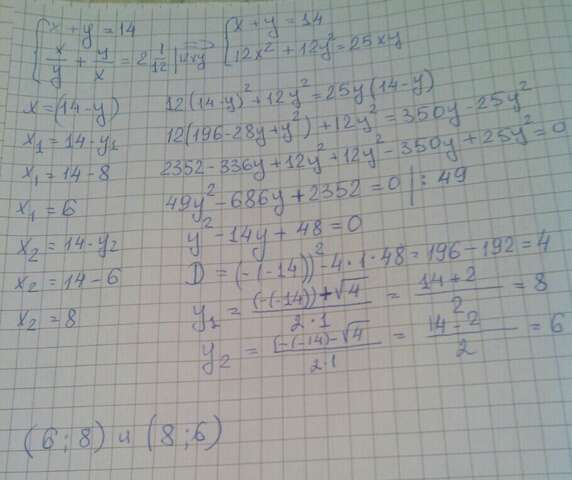 { x + y = 14
x/y + y/x = 2 1/12 | 12xy ⇒ { x + y = 14
12x² + 12y² = 25xy
x = (14 - y) 12(14 - y)² + 12y² = 25y(14 - y)
x₁ = 14 - y₁ 12(196 - 28y + y²) + 12y² = 350y - 25y²
x₁ = 14 - 8 2352 - 336y + 12y² + 12y² - 350y + 25y² = 0
x₁ = 6 49y² - 686y + 2352 = 0 | : 49
x₂ = 14 - y₂ y² - 14y + 48 = 0
x₂ = 14 - 6 D = (-(-14))² - 4 · 1 · 48 = 196 - 192 = 4
x₂ = 8 y₁ = (-(-14)) + √4 / 2 · 1 = 14 + 2 / 2 = 8
y₂ = (-(-14) - √4 / 2 · 1 = 14 - 2 / 2 = 6
(6 ; 8) и (8 ; 6)